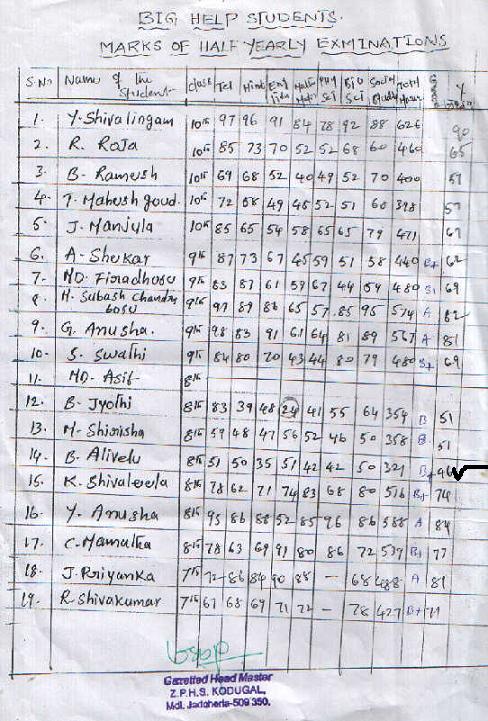 BIG HELP STUDENTS.
MARKS OF HALF YEARLY EXMINATIONS
S.No Name of the Student class Tel Hindi Eng Maths Phy Sci Bio Sci Social Study Total
1. Y. Shivalingam 10th 97 96 91 84 78 92 88 626 90
2. R. Raja 10th 85 73 70 52 52 68 60 460 65
3. B. Ramesh 10th 69 68 52 40 49 52 70 400 57
4. T. Mahesh goud. 10th 72 58 49 45 52 51 60 398 57
5. J. Manjula 10th 85 65 54 58 65 65 79 471 67
6. A- Shekar 9th 87 73 67 45 59 51 58 440 B+ 62
7. MD. 9th 83 87 61 59 67 44 59 480 69
8. H. Subash Chandra bose 9th 97 89 86 65 57 85 95 574 A 82
9. G. Anusha. 9th 98 83 91 61 64 81 89 567 A 81
10. S. Swathi 9th 84 80 70 43 44 80 79 480 B+ 69
11. MD- Asif 8th
12. B- Jyothi 8th 83 39 48 24 41 55 64 354 B 51
13. M- Shirisha 8th 59 48 47 56 52 46 50 358 B 51
14. B. Alivelu 8th 51 50 35 51 42 42 50 321 B+ 96
15. K. Shivaleela 8th 78 62 71 74 83 68 80 516 B+ 74
16. Y. Anusha 8th 95 86 88 52 85 96 86 588 A 84
17. C. Mamatha 8th 78 63 69 91 80 86 72 539 B+ 77
18. J. Priyanka 7th 72 86 84 90 88 - 68 488 A 81
19. R. Shivakumar 7th 67 68 69 71 72 - 78 427 B+ 71
Gazetted Head Master
Z.P.H.S. KODUGAL,
Mdl. Jadcherla-509 350.